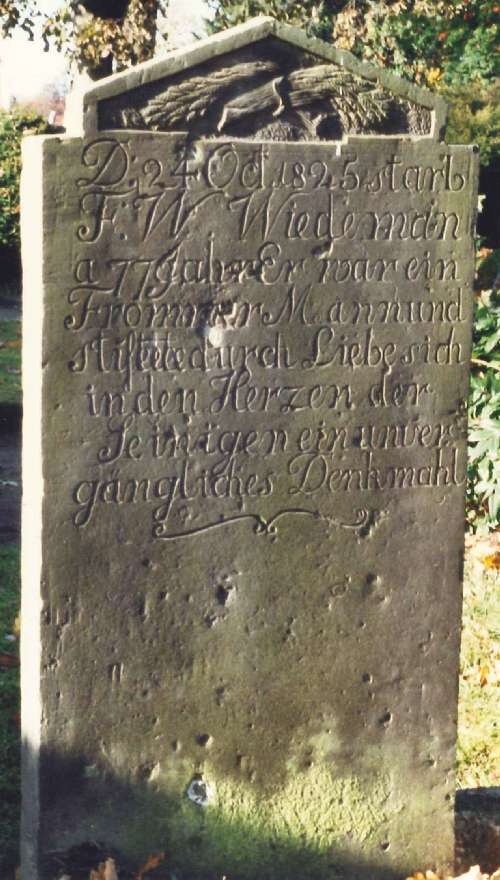 D. 24 Oct. 1825. starb
F. W. Wiedeman
a 77 Jahr Er war ein
Frommer Mann und
stiftete durch Liebe sich
in den Herzen der
Seinigen ein unver
gängliches Denkmahl